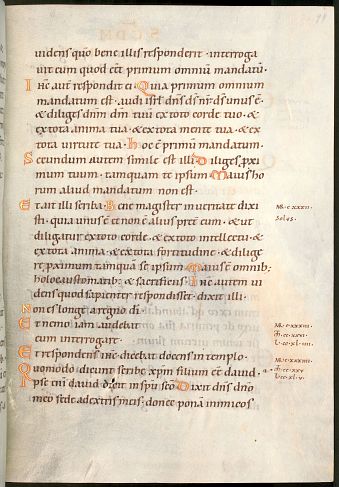 uidens quo bene illis responderit · interroga
uit eum quod eet primum omniū mandatū ·
Ihc aut respondit ei · Quia primum omnium
mandatum est · audi isrl dns ds nr ds unus ē ·
& diliges dnm dm tuū ex toto corde tuo · &
ex tota anima tua · & ex tota mente tua · & ex
tota uirtute tua · hoc ē primū mandatum ·
Secundum autem simile est illi · Diliges pxi
mum tuum · tamquam te ipsum · Maius ho
rum aliud mandatum non est ·
Et ait illi scriba · Bene magister in ueritate dixi
sti · quia unus ē et non ē alius pret eum · & ut
diligatur ex toto corde · & ex toto intellectu · &
ex tota anima · & ex tota fortitudine · & dilige
re pximum tamquā se ipsum · Maius ē omnib;
holocaustomatib; & sacrificiis · Ihc autem ui
dens quod sapienter respondisset · dixit illi ·
Non es longe a regno di ·
Et nemo iam audebat
eum interrogare ·
Et respondens ihc dicebat docens in templo ·
Quomodo dicunt scribe xpm filium eē dauid ·
Ipse eni dauid dicit in spu sco · Dixit dns dno
meo sede a dextris meis · donec ponā inimicos